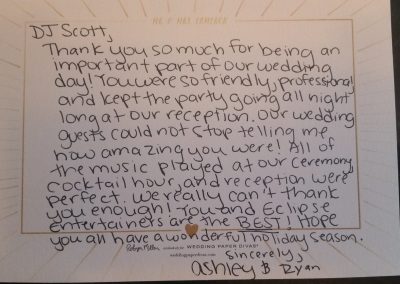 MR & MRS
DJ Scott,
Thank you so much for being an
important part of our wedding
day! You were so friendly, professional
and kept the party going all night
long at our reception. Our wedding
guests could not stop telling me
how amazing you were! All of
the music played at our ceremony,
cocktail hour, and reception were
perfect. We really can't thank
you enough! You and Eclipse
Entertainers are the BEST! Hope
you all have a wonderful holiday season.
WEDDING PAPER DIVAS
weddingpaperdivas.com
Sincerely,
Ashley & Ryan